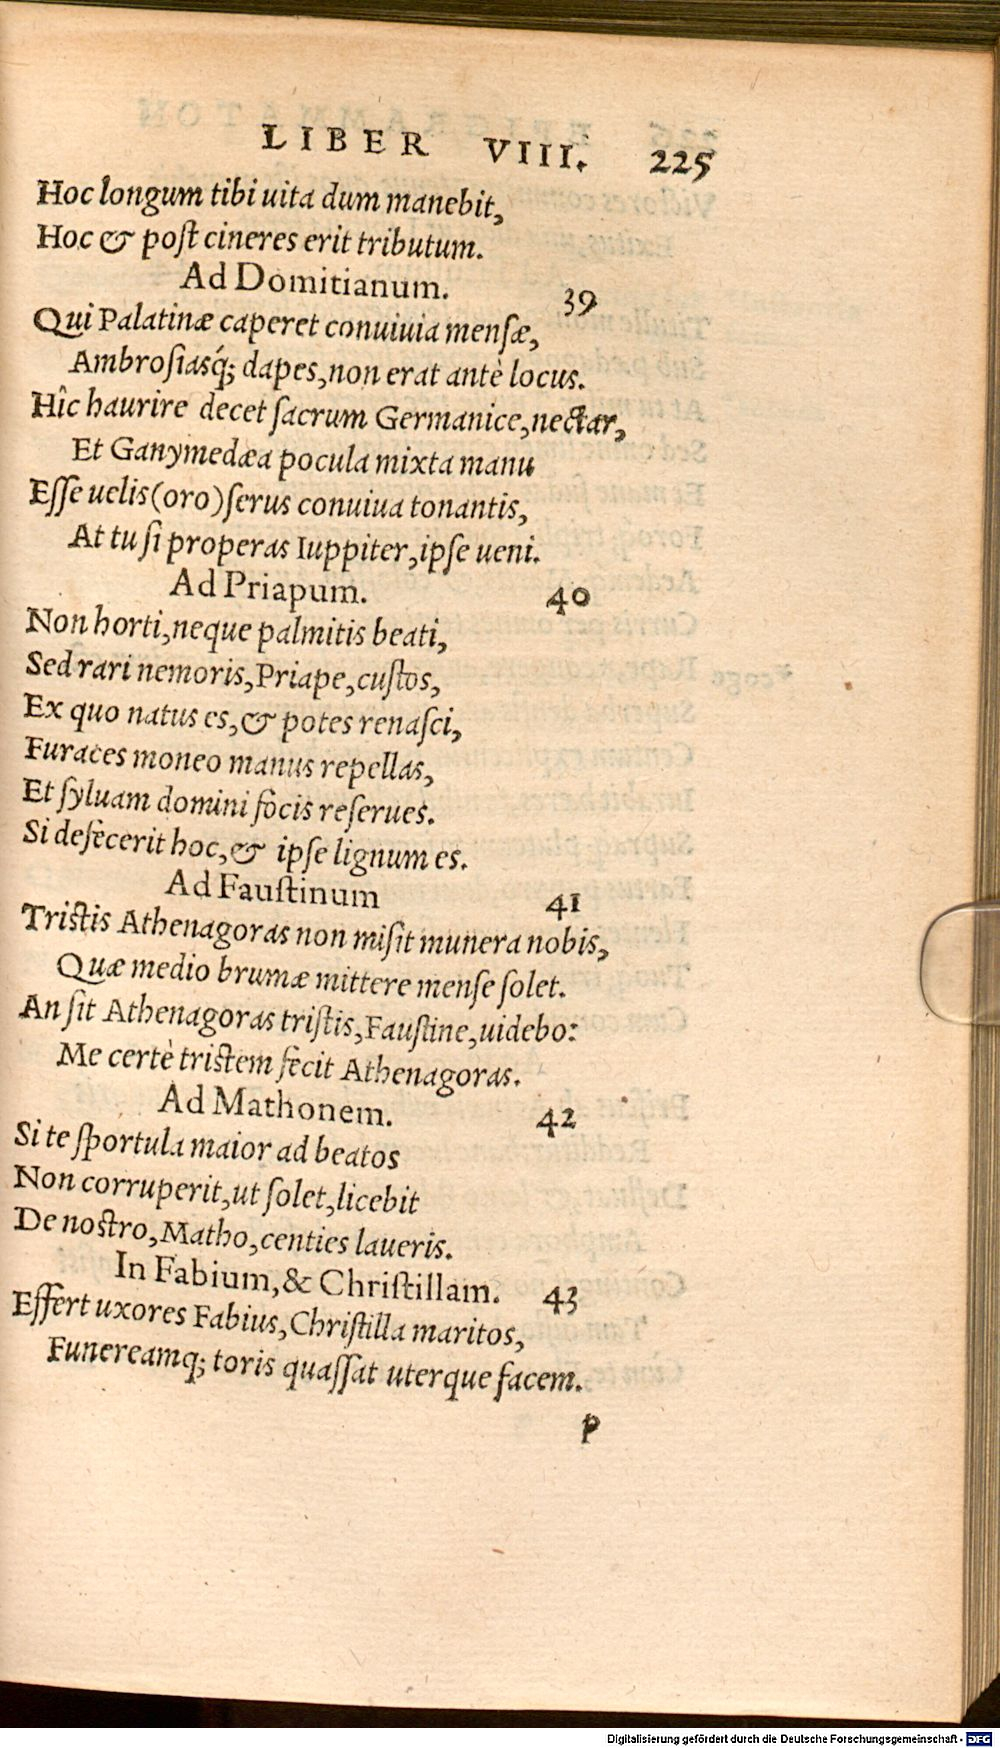 LIBER VIII. 225
Hoc longum tibi uita dum manebit,
Hoc & post cineres erit tributum.
Ad Domitianum. 39
Qui Palatinæ caperet conuiuia mensæ,
Ambrosiasq́; dapes, non erat antè locus.
Hîc haurire decet sacrum Germanice, nectar,
Et Ganymedæa pocula mixta manu
Esse uelis (oro) serus conuiua tonantis,
At tu si properas Iuppiter, ipse ueni.
Ad Priapum. 40
Non horti, neque palmitis beati,
Sed rari nemoris, Priape, custos,
Ex quo natus es, & potes renasci,
Furaces moneo manus repellas,
Et syluam domini focis reserues.
Si defecerit hoc, & ipse lignum es.
Ad Faustinum 41
Tristis Athenagoras non misit munera nobis,
Quæ medio brumæ mittere mense solet.
An sit Athenagoras tristis, Faustine, uidebo:
Me certè tristem fecit Athenagoras.
Ad Mathonem. 42
Si te sportula maior ad beatos
Non corruperit, ut solet, licebit
De nostro, Matho, centies laueris.
In Fabium, & Christillam. 43
Effert uxores Fabius, Christilla maritos,
Funereamq; toris quassat uterque facem.
p
Digitalisierung gefördert durch die Deutsche Forschungsgemeinschaft - DFG